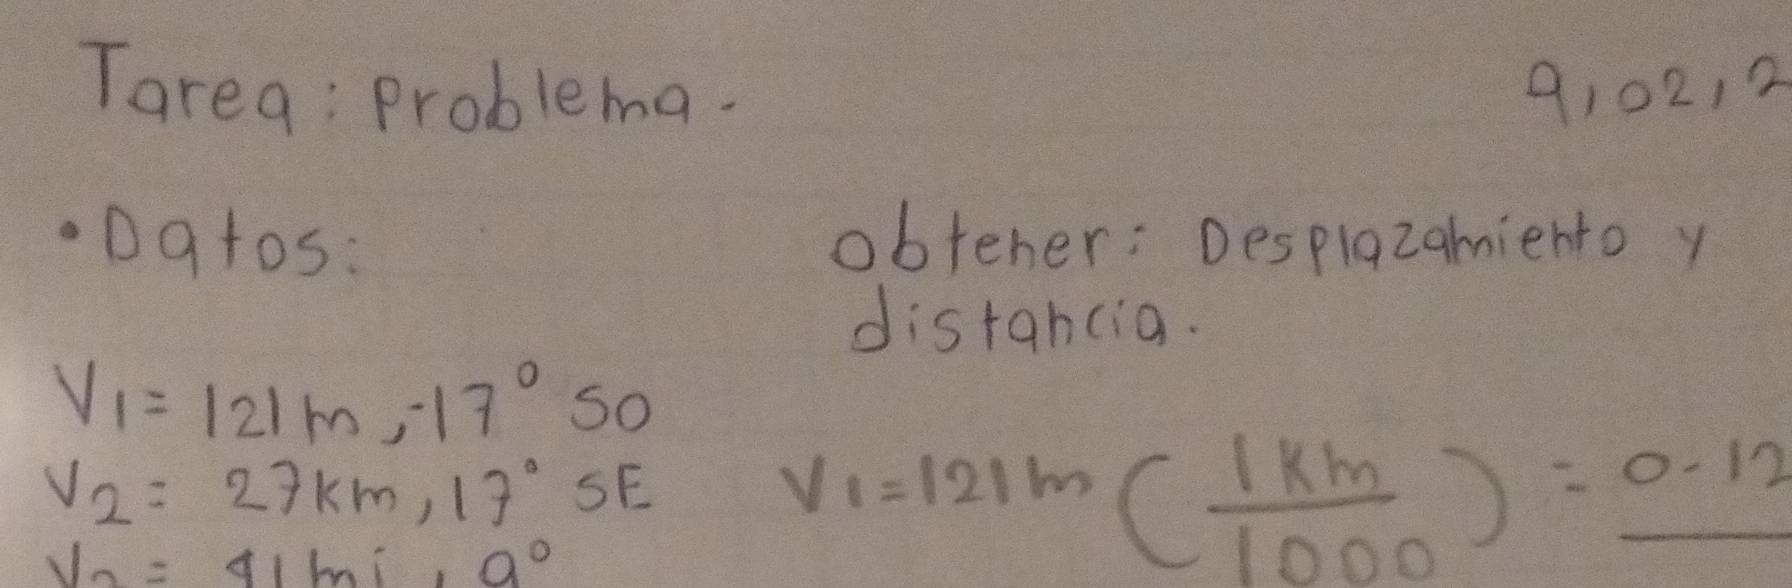 Tarea: Problema.
9,02,2
• Datos:
obtener: Desplazamiento y
distancia.
V1= 121m,-17° SO
V2= 27km, 17° SE
V1=121m (1Km/1000) = 0.12
mi, 9°